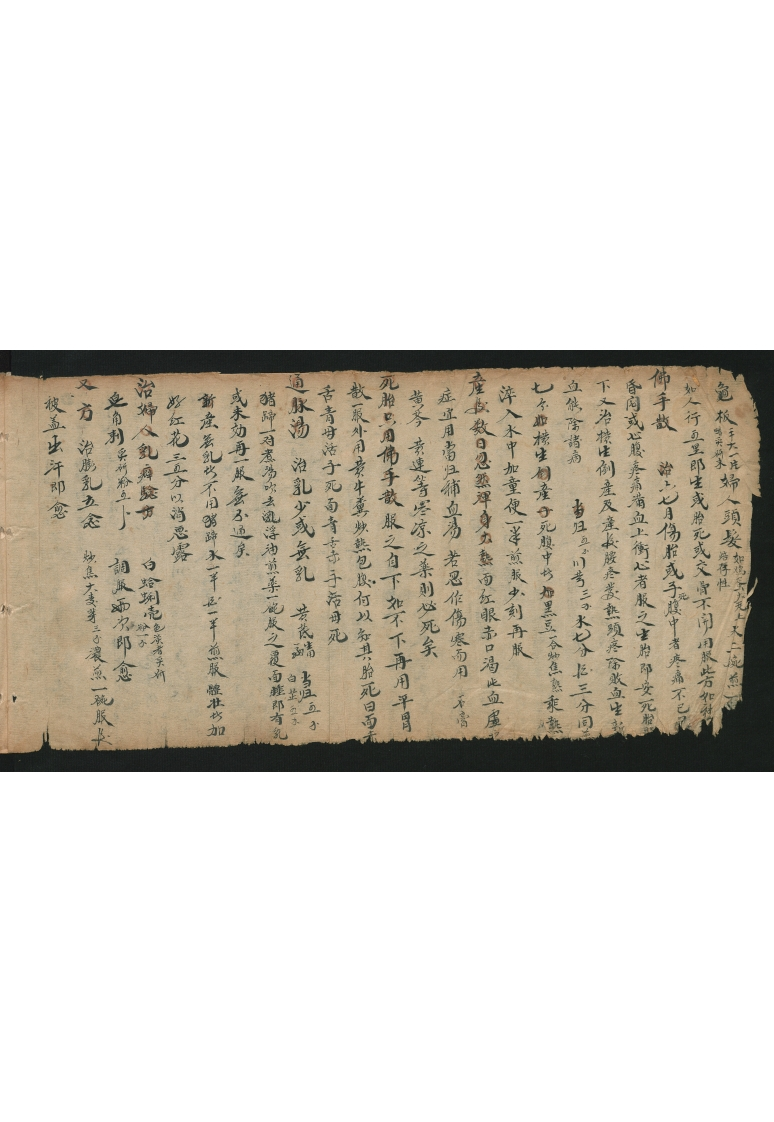 龜板 手大一片 婦人頭髮 如鷄子大 存性 水二碗煎一
如人行五里即生或胎死或交骨不開用服此方如神
佛手散 治六七月傷胎或子死腹中者疼痛不已口
昏悶或心腹疼痛滿血上衝心者服之生胎即安死胎即
下又治橫生倒產及產後腹疼發熱頭疼除敗血生新
血能除諸病 当归五分 川芎三分 水七分 酒三分同
七分 如橫生倒產子死腹中者加黑豆一合炒焦熟乘熱
淬入水中加童便一半煎服少刻再服
產後數日忽然渾身大熱面紅眼赤口渴此血虛
症宜用當归補血湯 若思作傷寒而用 石膏
黃芩 黃連等寒凉之藥則必死矣
死胎只用佛手散服之自下如不下再用平胃
散一服外用黃牛糞炊熱包腹何以知其胎死曰面赤
舌青母活子死面青舌赤子活母死
通脉湯 治乳少或無乳 黃芪一両 当归五分 白芷五分
猪蹄一对煮湯吹去浮油煎藥一碗服之覆面睡即有乳
或未効再一服無不通矣
新產無乳者不用猪蹄水一半酒一半煎服體壯者加
好紅花三五分以消惡露
治婦人乳癖驗方 白蛤蜊壳
皂角刺 各研粉五卜 調服両次即愈
又方 治膨乳立愈 炒焦大麦芽三分 濃煎一碗服
被盖出汗即愈